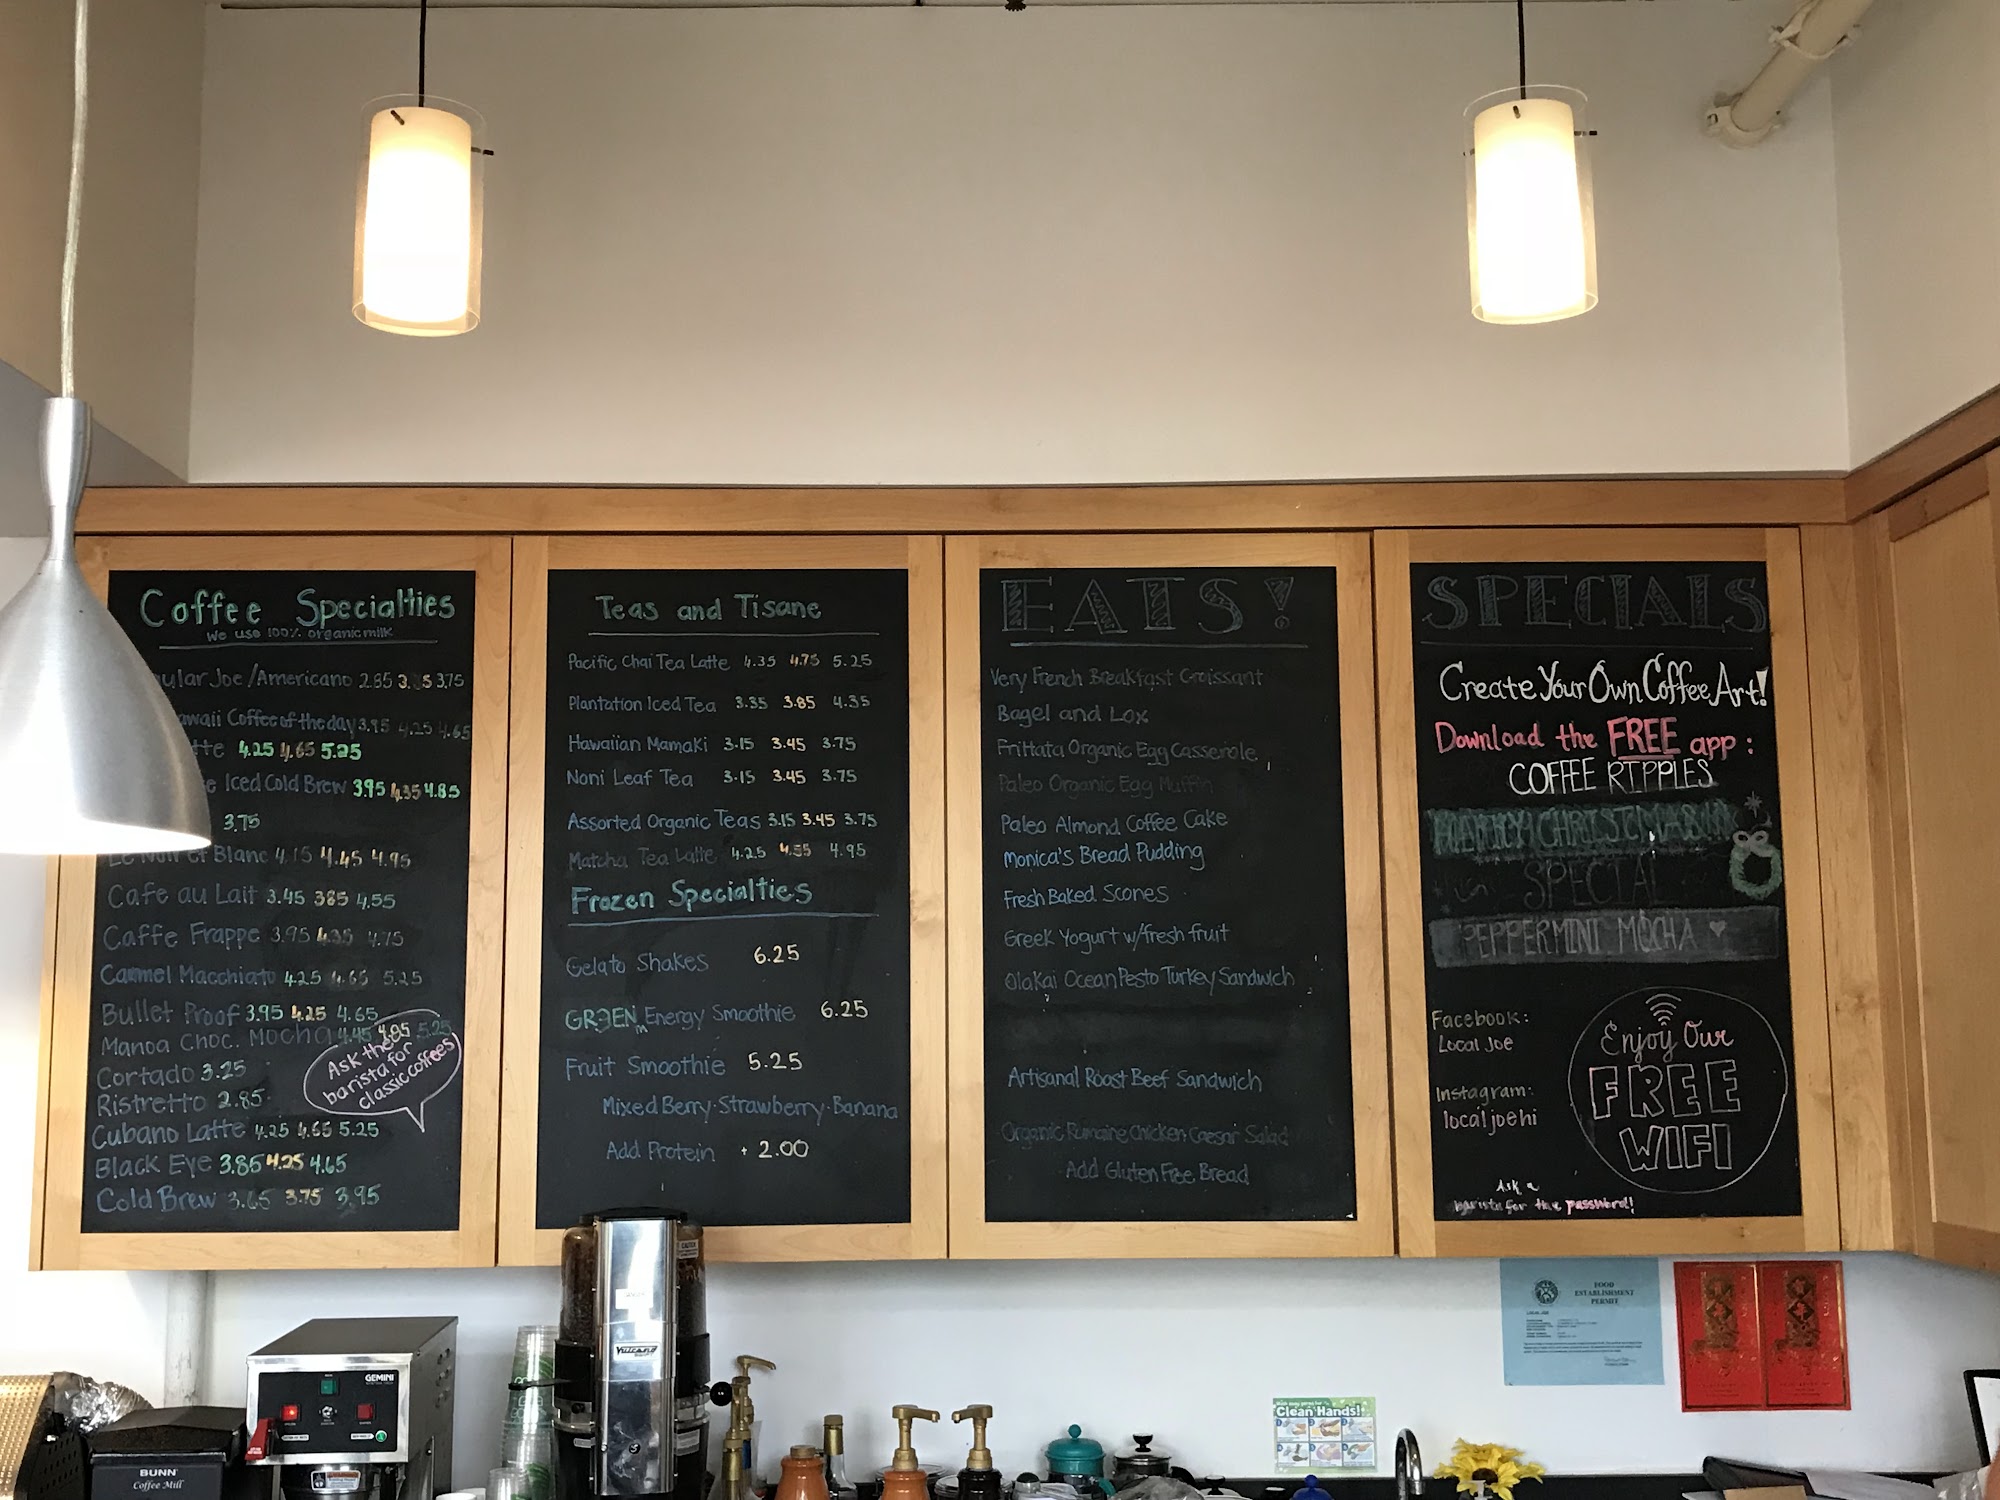 Coffee Specialties
We use 100% organic milk
ular Joe/Americano 2.85 3. 5 3.75
awaii Coffee of the day 3.95 4.25 4.65
tte 4.25 4.65 5.25
e Iced Cold Brew 3.95 4.35 4.85
3.75
Le Noir et Blanc 4.15 4.45 4.95
Cafe au Lait 3.45 3.85 4.55
Caffe Frappe 3.95 4.35 4.75
Caramel Macchiato 4.25 4.65 5.25
Bullet Proof 3.95 4.25 4.65
Manoa Choc. Mocha 4.45 4.85 5.25
Cortado 3.25
Ristretto 2.85
Cubano Latte 4.25 4.65 5.25
Black Eye 3.85 4.25 4.65
Cold Brew 3.65 3.75 3.95
Ask the
barista for
classic coffees
Teas and Tisane
Pacific Chai Tea Latte 4.35 4.75 5.25
Plantation Iced Tea 3.35 3.85 4.35
Hawaiian Mamaki 3.15 3.45 3.75
Noni Leaf Tea 3.15 3.45 3.75
Assorted Organic Teas 3.15 3.45 3.75
Matcha Tea Latte 4.25 4.55 4.95
Frozen Specialties
Gelato Shakes 6.25
GREEN Energy Smoothie 6.25
Fruit Smoothie 5.25
Mixed Berry · Strawberry · Banana
Add Protein + 2.00
EATS!
Very French Breakfast Croissant
Bagel and Lox
Frittata Organic Egg Casserole
Paleo Organic Egg Muffin
Paleo Almond Coffee Cake
Monica's Bread Pudding
Fresh Baked Scones
Greek Yogurt w/fresh fruit
Olakai Ocean Pesto Turkey Sandwich
Artisanal Roast Beef Sandwich
Organic Rumaine Chicken Caesar Salad
Add Gluten Free Bread
SPECIALS
Create Your Own Coffee Art!
Download the FREE app:
COFFEE RIPPLES
SPECIAL
PEPPERMINT MOCHA
Facebook:
Local Joe
Instagram:
localjoehi
Enjoy Our
FREE
WIFI
Ask a
barista for the password!!
FOOD
ESTABLISHMENT
PERMIT
Clean Hands!
GEMINI
BUNN
Coffee Mill
Vulcano